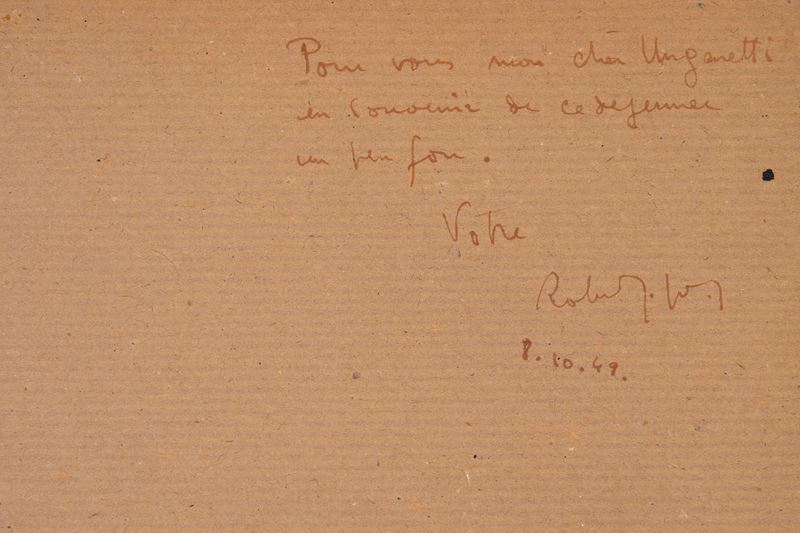 Pour vous mon cher Ungaretti
en souvenir de ce déjeuner
un peu fou.
Votre
Robert J. G.
8.10.49.